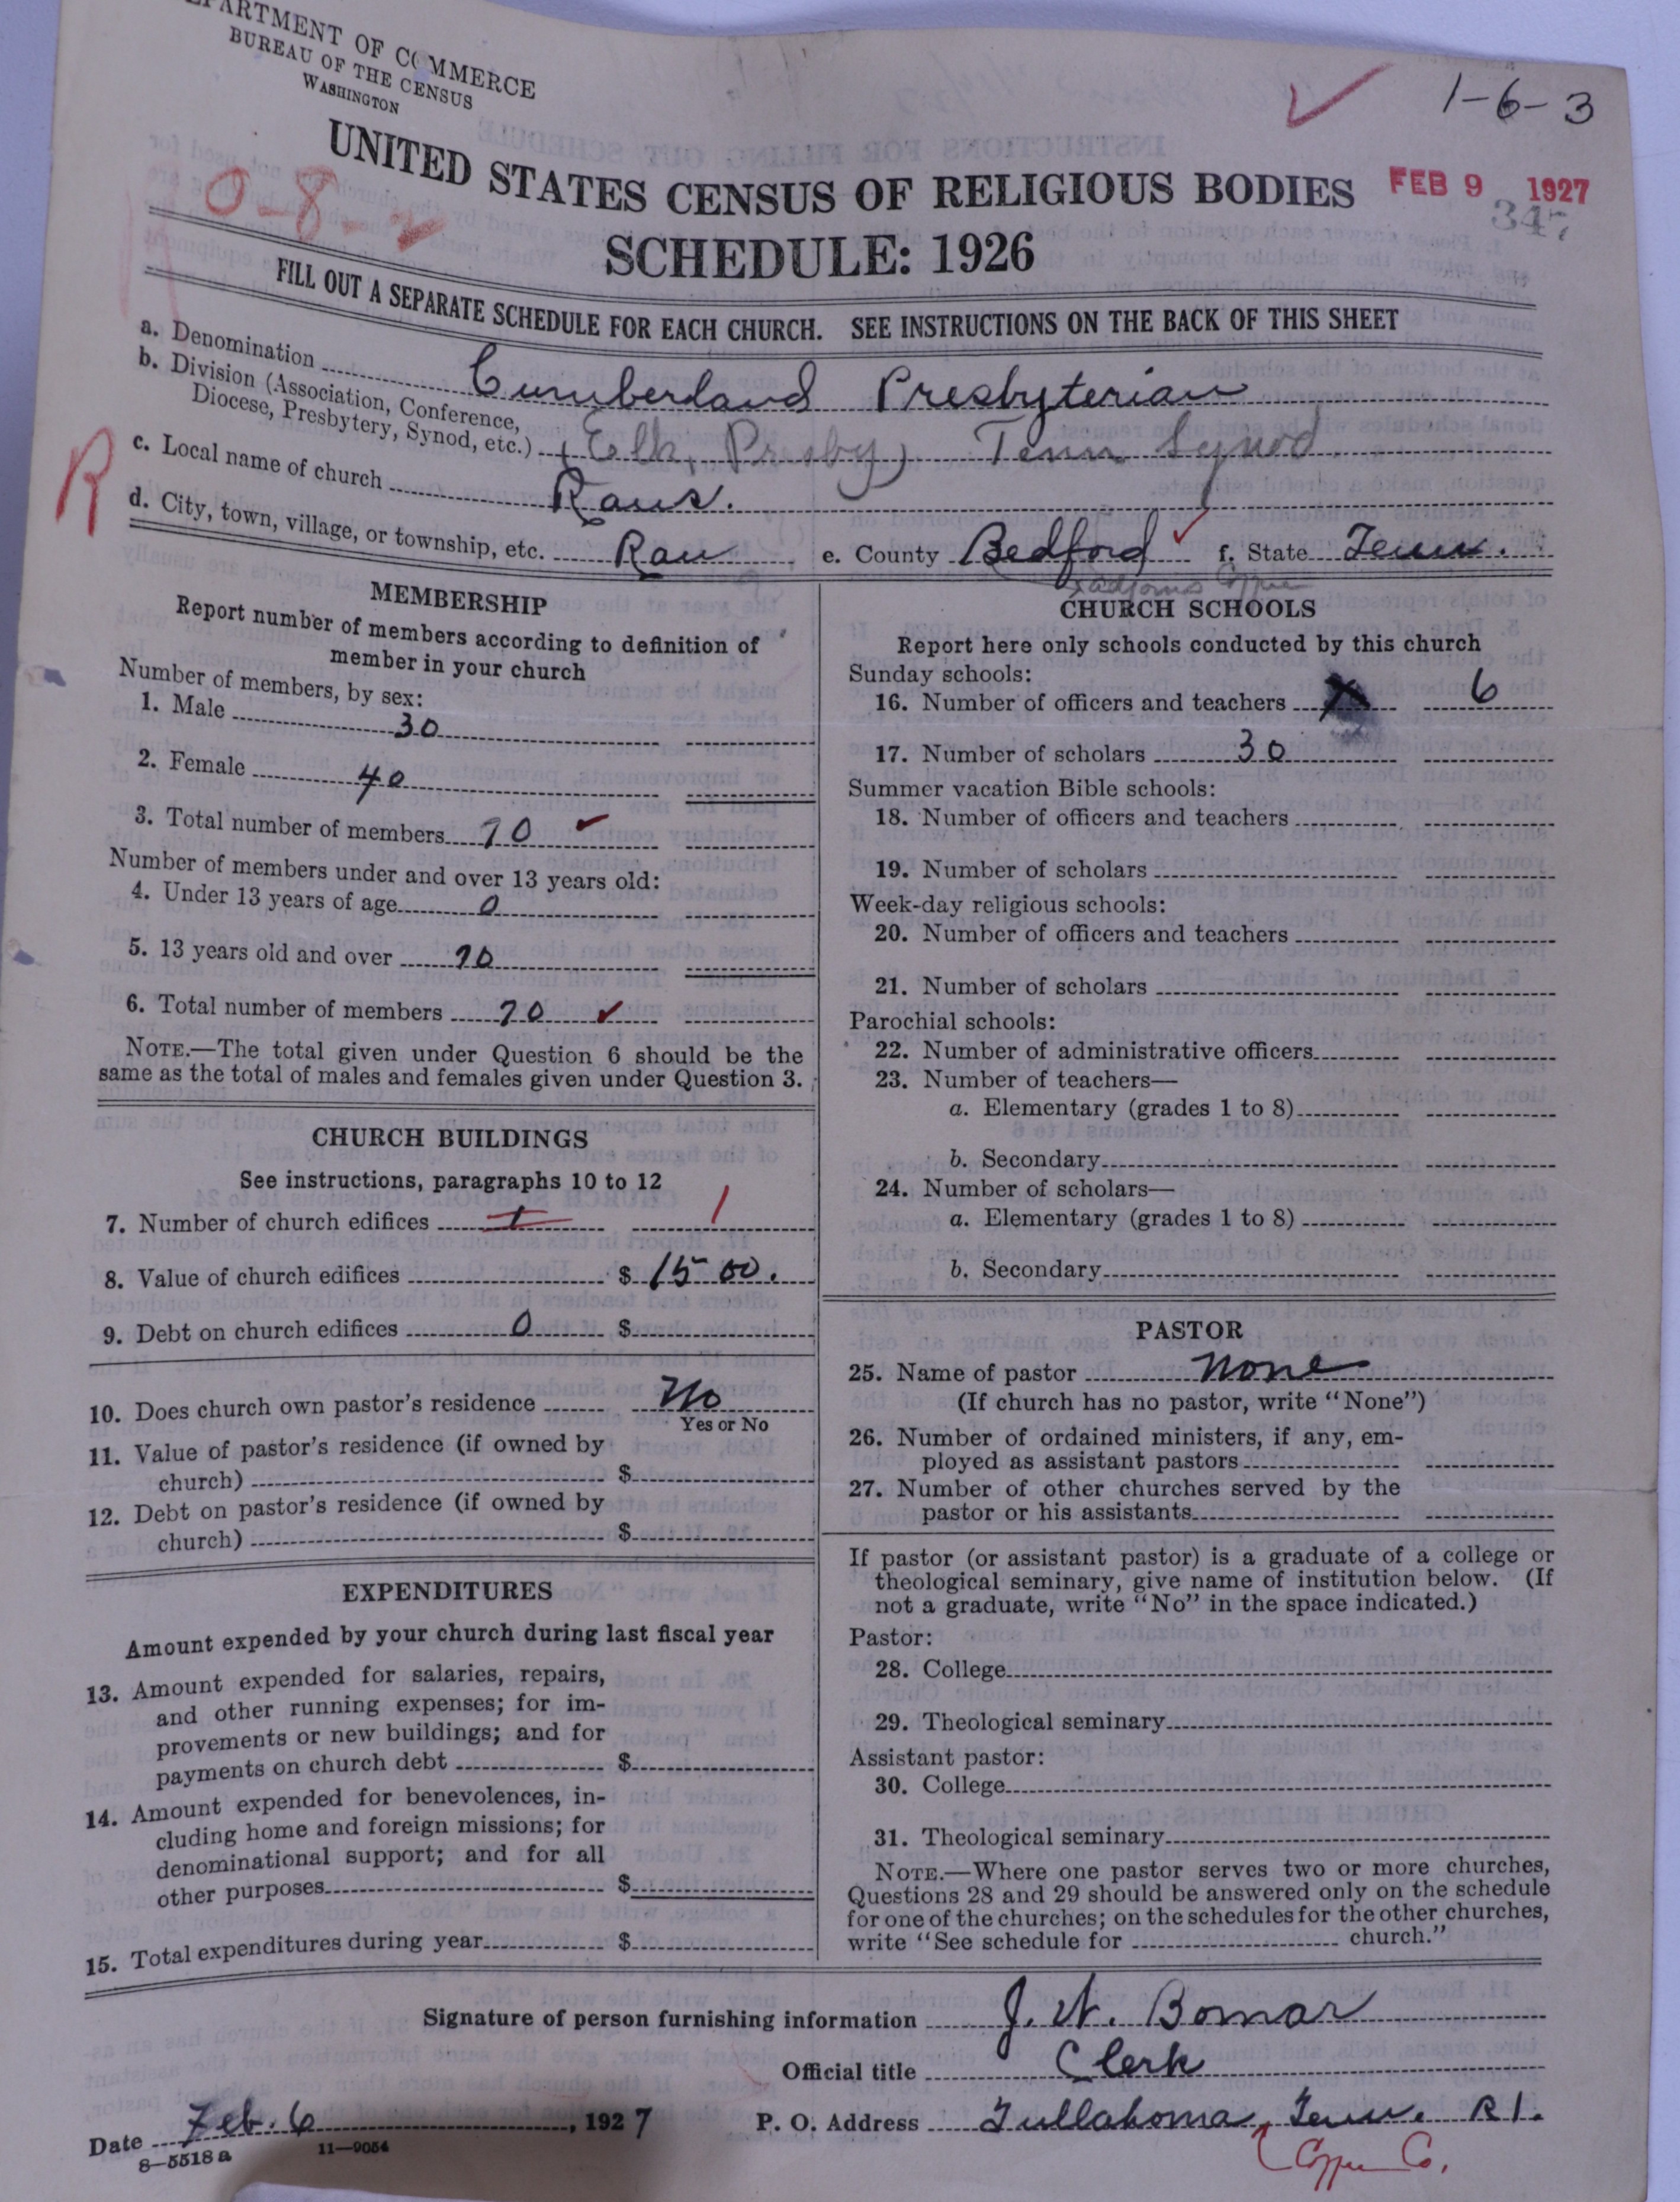 DEPARTMENT OF COMMERCE
BUREAU OF THE CENSUS
WASHINGTON
1-6-3
UNITED STATES CENSUS OF RELIGIOUS BODIES
FEB 9 1927
347
0-8-2
SCHEDULE: 1926
FILL OUT A SEPARATE SCHEDULE FOR EACH CHURCH. SEE INSTRUCTIONS ON THE BACK OF THIS SHEET
a. Denomination Cumberland Presbyterian
b. Division (Association, Conference,
Diocese, Presbytery, Synod, etc.) (Elk, Presby) Tenn Synod
R
c. Local name of church Raus.
d. City, town, village, or township, etc. Rau e. County Bedford f. State Tenn.
MEMBERSHIP
Report number of members according to definition of
member in your church
Number of members, by sex:
1. Male 30
2. Female 40
3. Total number of members 70
Number of members under and over 13 years old:
4. Under 13 years of age 0
5. 13 years old and over 70
6. Total number of members 70
NOTE.—The total given under Question 6 should be the
same as the total of males and females given under Question 3.
CHURCH BUILDINGS
See instructions, paragraphs 10 to 12
7. Number of church edifices 1 1
8. Value of church edifices $ 1500.
9. Debt on church edifices 0 $
10. Does church own pastor's residence No
Yes or No
11. Value of pastor's residence (if owned by
church) $
12. Debt on pastor's residence (if owned by
church) $
EXPENDITURES
Amount expended by your church during last fiscal year
13. Amount expended for salaries, repairs,
and other running expenses; for im-
provements or new buildings; and for
payments on church debt $
14. Amount expended for benevolences, in-
cluding home and foreign missions; for
denominational support; and for all
other purposes $
15. Total expenditures during year $
adjoins Coffee
CHURCH SCHOOLS
Report here only schools conducted by this church
Sunday schools:
16. Number of officers and teachers 6
17. Number of scholars 30
Summer vacation Bible schools:
18. Number of officers and teachers
19. Number of scholars
Week-day religious schools:
20. Number of officers and teachers
21. Number of scholars
Parochial schools:
22. Number of administrative officers
23. Number of teachers—
a. Elementary (grades 1 to 8)
b. Secondary
24. Number of scholars—
a. Elementary (grades 1 to 8)
b. Secondary
PASTOR
25. Name of pastor None
(If church has no pastor, write "None")
26. Number of ordained ministers, if any, em-
ployed as assistant pastors
27. Number of other churches served by the
pastor or his assistants
If pastor (or assistant pastor) is a graduate of a college or
theological seminary, give name of institution below. (If
not a graduate, write "No" in the space indicated.)
Pastor:
28. College
29. Theological seminary
Assistant pastor:
30. College
31. Theological seminary
NOTE.—Where one pastor serves two or more churches,
Questions 28 and 29 should be answered only on the schedule
for one of the churches; on the schedules for the other churches,
write "See schedule for church."
Signature of person furnishing information J. W. Bomar
Official title Clerk
Date Feb. 6, 1927 P. O. Address Tullahoma, Tenn. R1.
8—5518 a 11—9054
(Coffee Co.